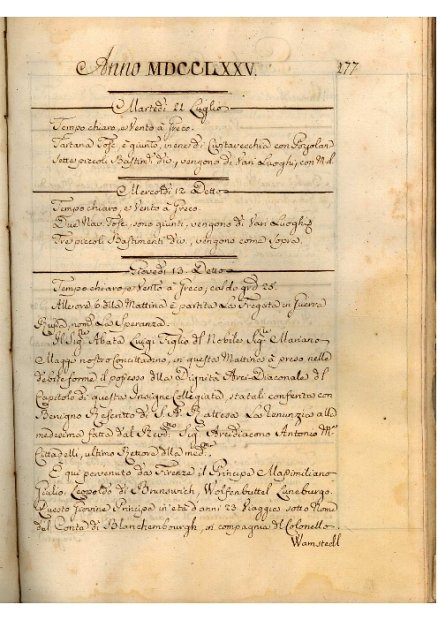 Anno MDCCLXXV. 277
Martedì 11 Luglio
Tempo chiaro, e Vento à Greco.
Tartana Tosc. è giunta, viene di Civitavecchia con
Sette piccoli Bastim.ti div., vengono di Vari Luoghi, con
Mercoldì 12 Detto
Tempo chiaro, e Vento à Greco.
Due Nav. Tosc. sono giunti, vengono di Vari Luoghi
Tre piccoli Bastimenti div., vengono come Sopra.
Giovedì 13. Detto
Tempo chiaro, e Vento à Greco, caldo grd 25.
Alle ore 6 dlla Mattina è partita La Fregata in Guerra
Russa, nom.ta La Speranza.
Il Sig.re Abate Luigi Figlio dl Nobile Sig.re Mariano
Maggi nostro Concittadino, in questa Mattina à preso nelle
debite forme il possesso dlla Dignità Arci-Diaconale dl
Capitolo di questa Insigne Collegiata, statali conferita con
Benigno Rescritto di S. A. R. attesa La renunzia alla
medesima fatta dal Sig. Arcidiacono Antonio M.a
Cittadelli, ultimo Rettore dlla med.ma
È qui pervenuto da Firenze il Principe Massimiliano
Giulio Leopoldo di Brunswich, Wolfenbuttel Luneburgo.
Questo giovine Principe in età d'anni 23 Viaggia sotto Nome
del Conte di Blanchembourgh, in compagnia dl Colonello
Wamstedl